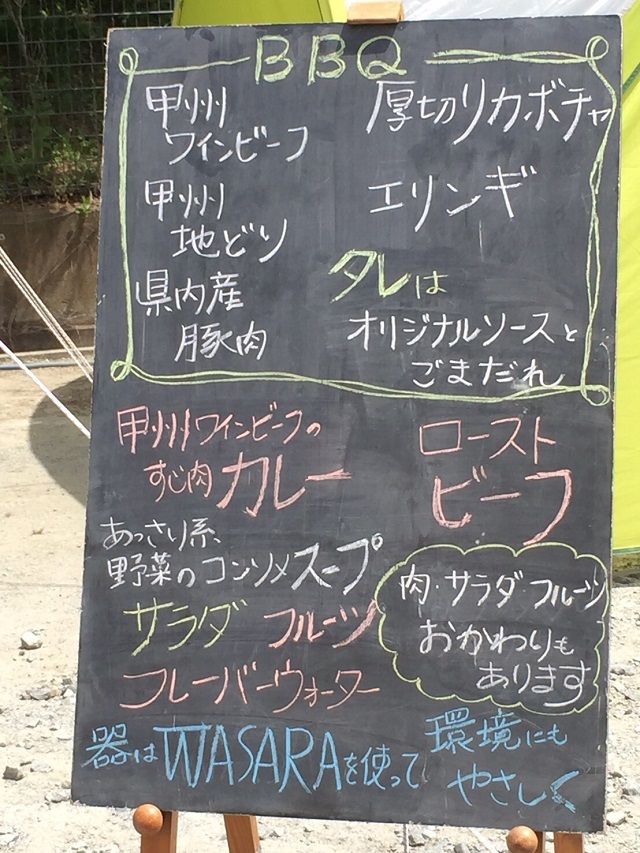 BBQ
甲州
ワインビーフ
甲州
地どり
県内産
豚肉
厚切りカボチャ
エリンギ
タレは
オリジナルソースと
ごまだれ
甲州ワインビーフの
すじ肉カレー
ロースト
ビーフ
あっさり系、
野菜のコンソメスープ
サラダ フルーツ
フレーバーウォーター
肉・サラダ・フルーツ
おかわりも
あります
器はWASARAを使って
環境にも
やさしく